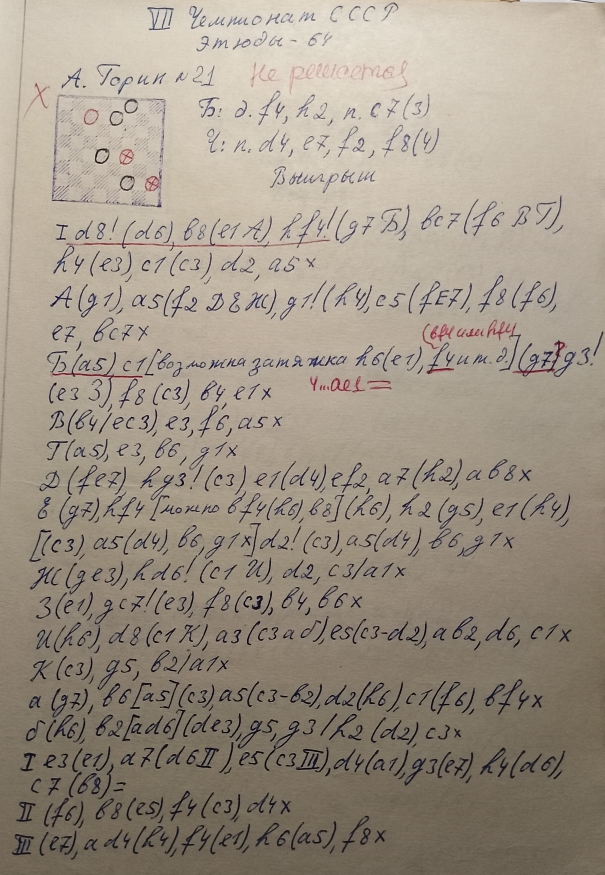 VII Чемпионат СССР
Этюды - 64
А. Горин №21 Не решается
X
Б: д. f4, h2, п. c7 (3)
Ч: п. d4, e7, f2, f8 (4)
Выигрыш
I d8! (d6), в8 (e1 A), hf4! (g7 Б), вc7 (f6 В Г),
h4 (e3), c1 (c3), d2, a5x
А (g1), a5 (f2 Д Е Ж), g1! (h4), c5 (fe7), f8 (f6),
e7, вc7x
(вf4 или hf4
Б (a5) c1 [возможна затяжка h6 (e1), f4 и т. д.] (g7) g3!
(e3 З), f8 (c3), в4, e1x 4...ae1=
В (в4/ec3) e3, f6, a5x
Г (a5), e3, в6, g1x
Д (fe7), hg3! (c3), e1 (d4), ef2, a7 (h2), aв8x
Е (g7), hf4 [можно вf4 (h6), в8] (h6), h2 (g5), e1 (h4),
[(c3), a5 (d4), в6, g1x] d2! (c3), a5 (d4), в6, g1x
Ж (ge3), hd6! (c1 И), d2, c3/a1x
З (e1), gc7! (e3), f8 (c3), в4, в6x
И (h6), d8 (c1 К), a3 (c3 а б), e5 (c3-d2), aв2, d6, c1x
К (c3), g5, в2/a1x
а (g7), в6 [a5] (c3), a5 (c3-в2), d2 (h6), c1 (f6), вf4x
б (h6), в2 [ad6] (de3), g5, g3/h2 (d2), c3x
I e3 (e1), a7 (d6 II), e5 (c3 III), d4 (a1), g3 (e7), h4 (d6),
c7 (в8)=
II (f6), в8 (e5), f4 (c3), d4x
III (e7), ad4 (h4), f4 (e1), h6 (a5), f8x